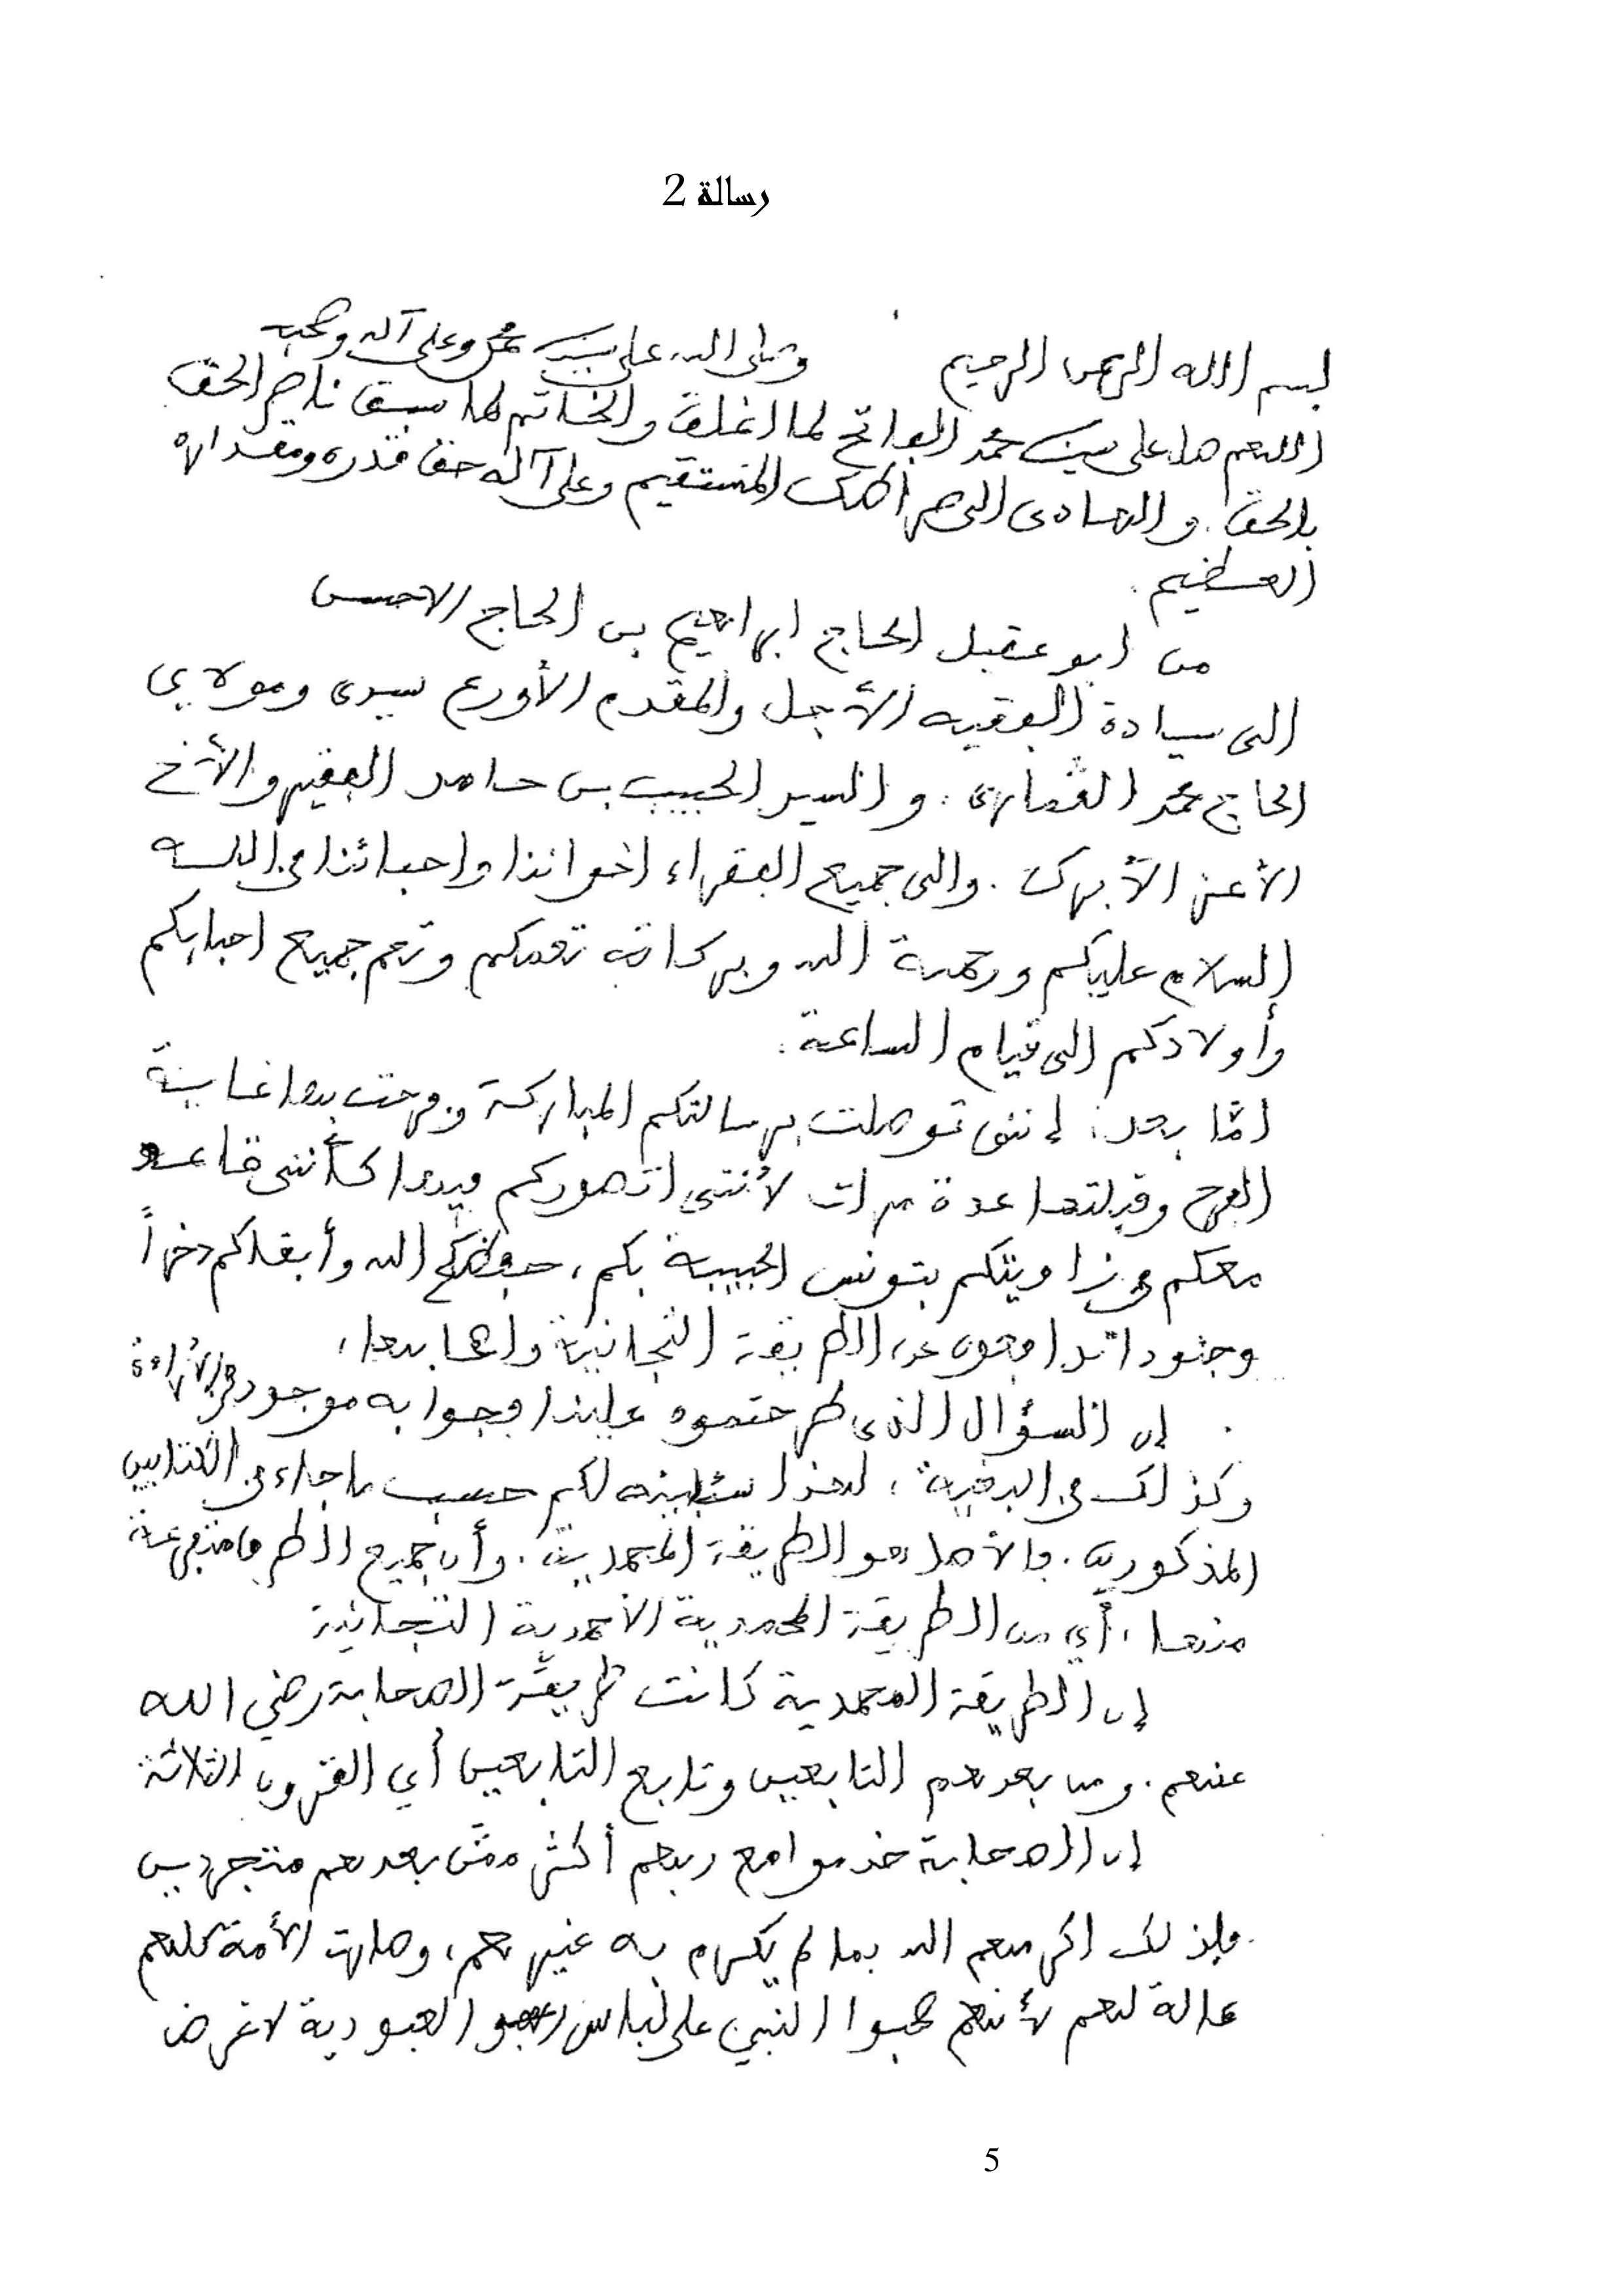 رسالة 2
بسم الله الرحمن الرحيم وصلى الله على سيدنا محمد وعلى آله وصحبه
اللهم صل على سيدنا محمد الفاتح لما اغلق والخاتم لما سبق ناصر الحق
بالحق. والهادي الى صراطك المستقيم وعلى آله حق قدره ومقداره
العظيم.
من ابو عقيل الحاج ابراهيم بن الحاج الاحسن
الى سيادة الفقيه الأجل والمقدم الأورع سيدي ومولاي
الحاج محمد القماري. والسيد الحبيب بن حامد الفقير والأخ
الأعز الأبرك. والى جميع الفقراء اخواننا واحبائنا في الله
السلام عليكم ورحمة الله وبركاته تعمكم وتعم جميع احبابكم
وأولادكم الى قيام الساعة:
امّا بعد: إنني توصلت برسالتكم المباركة وفرحت بها غاية
الفرح وقبلتها عدة مرات لأنني اتصوركم فيها كأنني قاعد
معكم في زاويتكم بتونس الحبيبة بكم، حفظكم الله وأبقاكم ذخراً
وجنودا تدافعون عن الطريقة التجانية واصحابها،
إن السؤال الذي طرحتموه علينا فجوابه موجود في
وكذلك في البغية، لهذا سنبينه لكم حسب ما جاء في الكتابين
المذكورين. فالأصل هو الطريقة المحمدية. وأن جميع الطرق متفرعة
منها، أي من الطريقة المحمدية الأحمدية التجانية
إن الطريقة المحمدية كانت طريقة الصحابة رضي الله
عنهم. ومن بعدهم التابعين وتابع التابعين أي القرون الثلاثة
إن الصحابة خدموا مع ربهم أكثر ممّن بعدهم متجردين
فلذلك اكرمهم الله بما لم يكرم به غيرهم، وصارت الأمة كلهم
عالة لهم لأنهم صحبوا النبي على لباس العبودية لا غرض
5